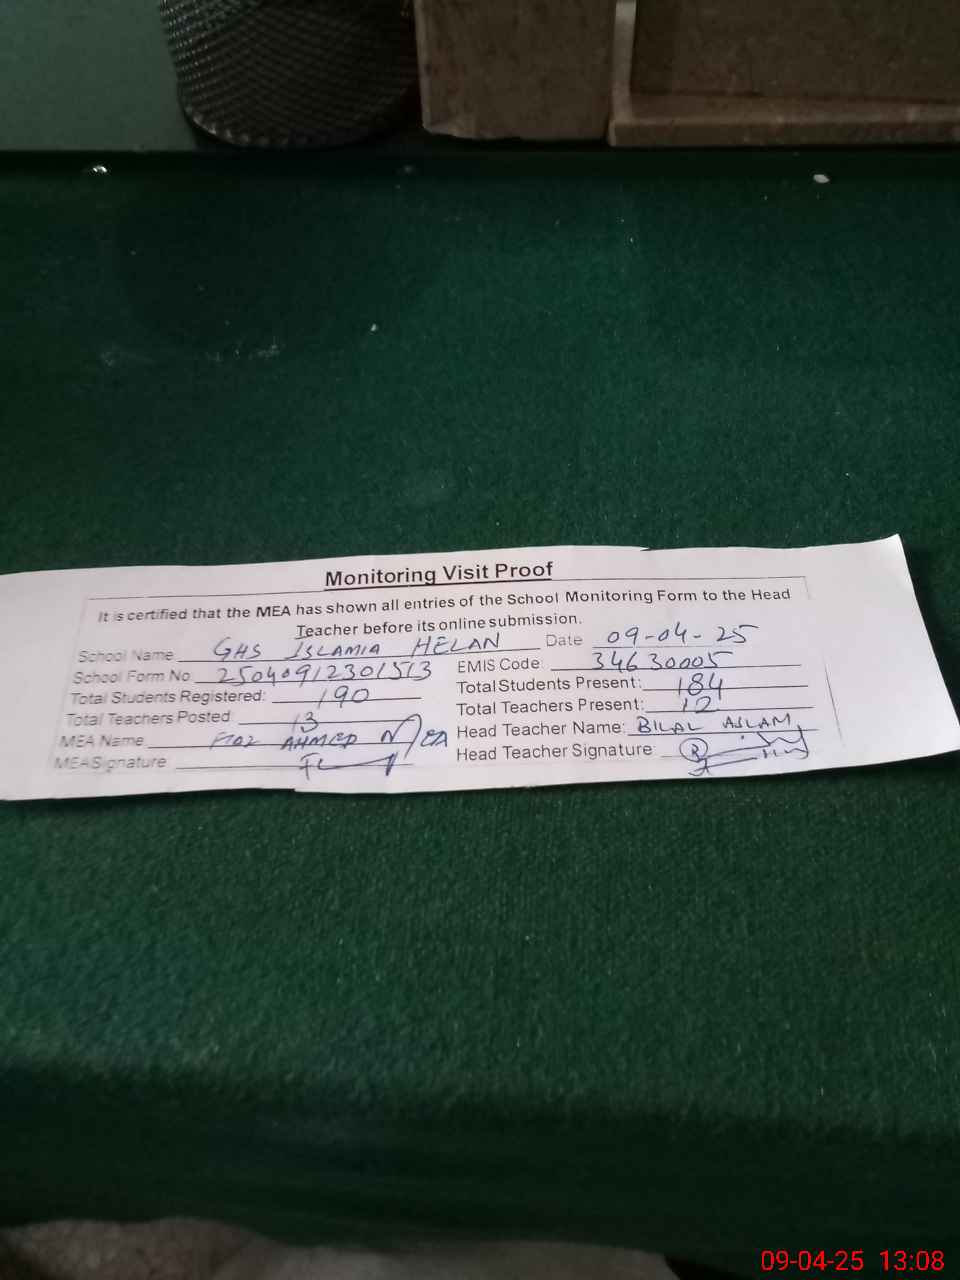 Monitoring Visit Proof
It is certified that the MEA has shown all entries of the School Monitoring Form to the Head
Teacher before its online submission.
School Name GHS ISLAMIA HELAN Date 09-04-25
School Form No 25040912301513 EMIS Code: 34630005
Total Students Registered: 190 Total Students Present: 184
Total Teachers Posted: 13 Total Teachers Present: 12
MEA Name AHMED Head Teacher Name: BILAL ASLAM
MEA Signature Head Teacher Signature
09-04-25 13:08